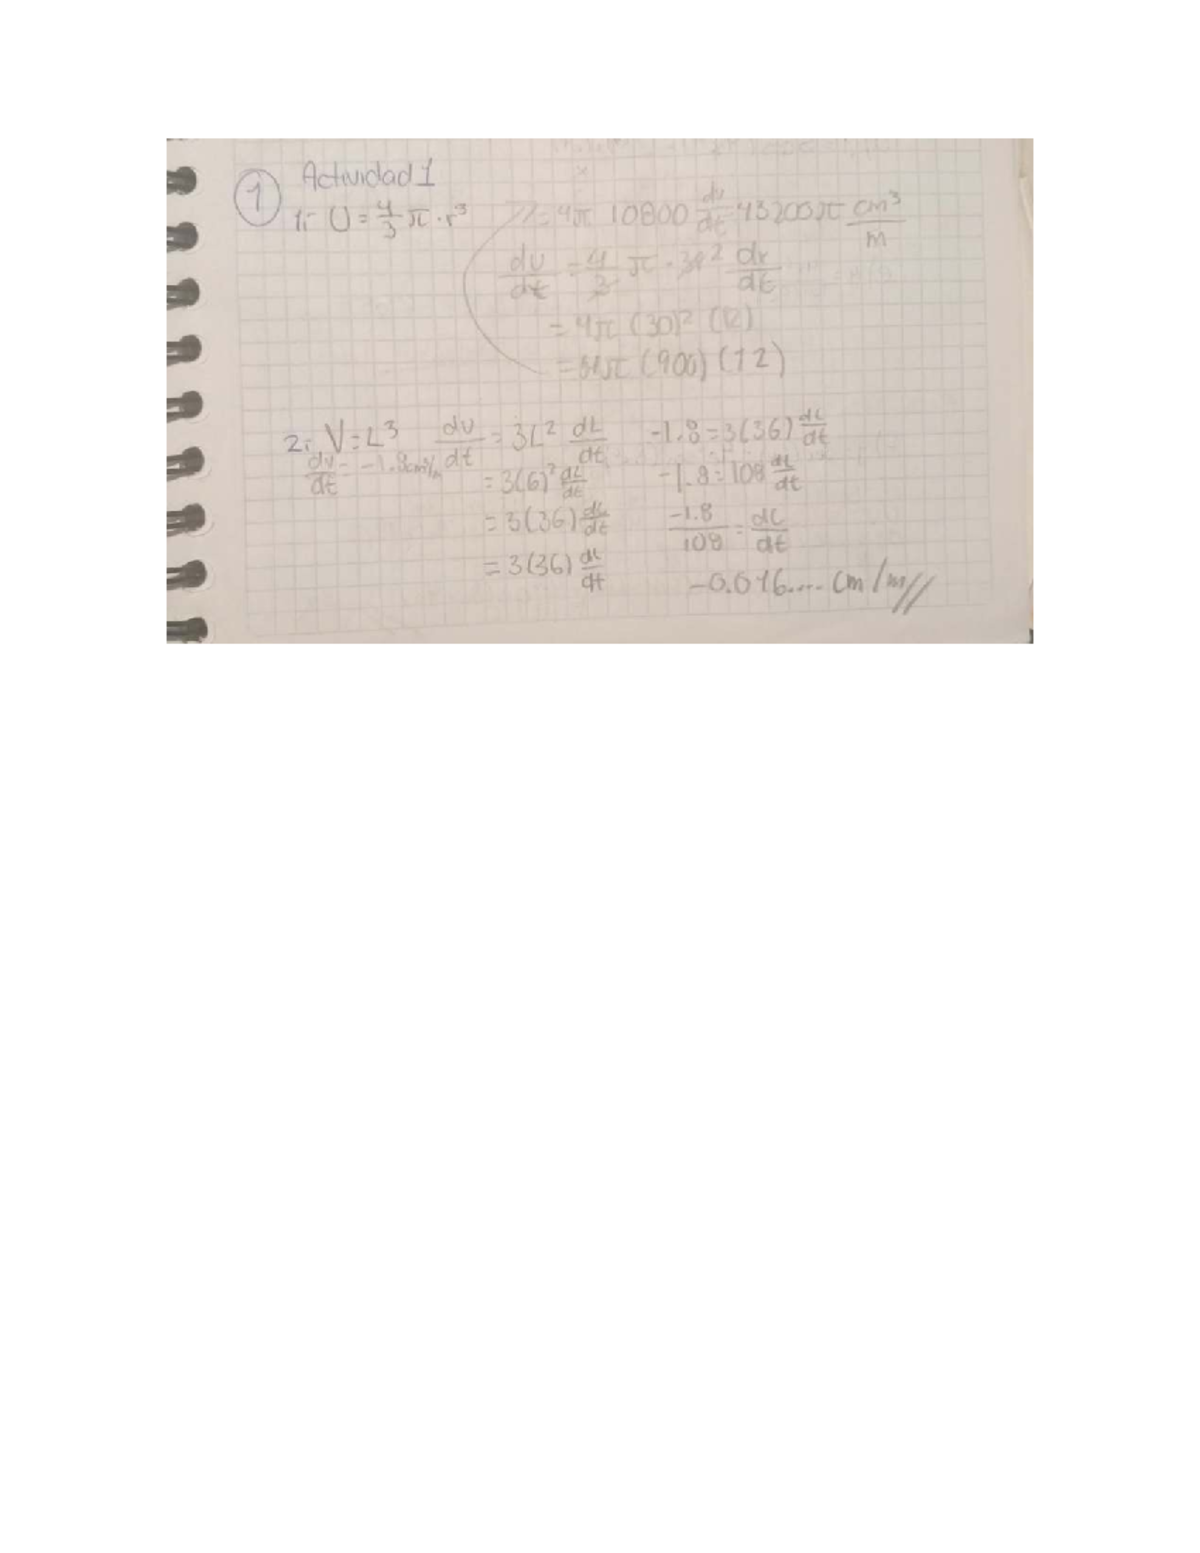 1 Actividad 1
1.- V = 4/3 π · r³
= 4π 10800 dv/dt = 43200π cm³/m
dv/dt = 4/3 π · 3r² dr/dt
= 4π (30)² (12)
= 4π (900) (12)
2.- V = L³ dv/dt = 3L² dL/dt -1.8 = 3(36) dL/dt
dv/dt = -1.8cm³/m = 3(6)² dL/dt -1.8 = 108 dL/dt
= 3(36) dL/dt -1.8/108 = dL/dt
= 3(36) dL/dt -0.016.... cm/m//